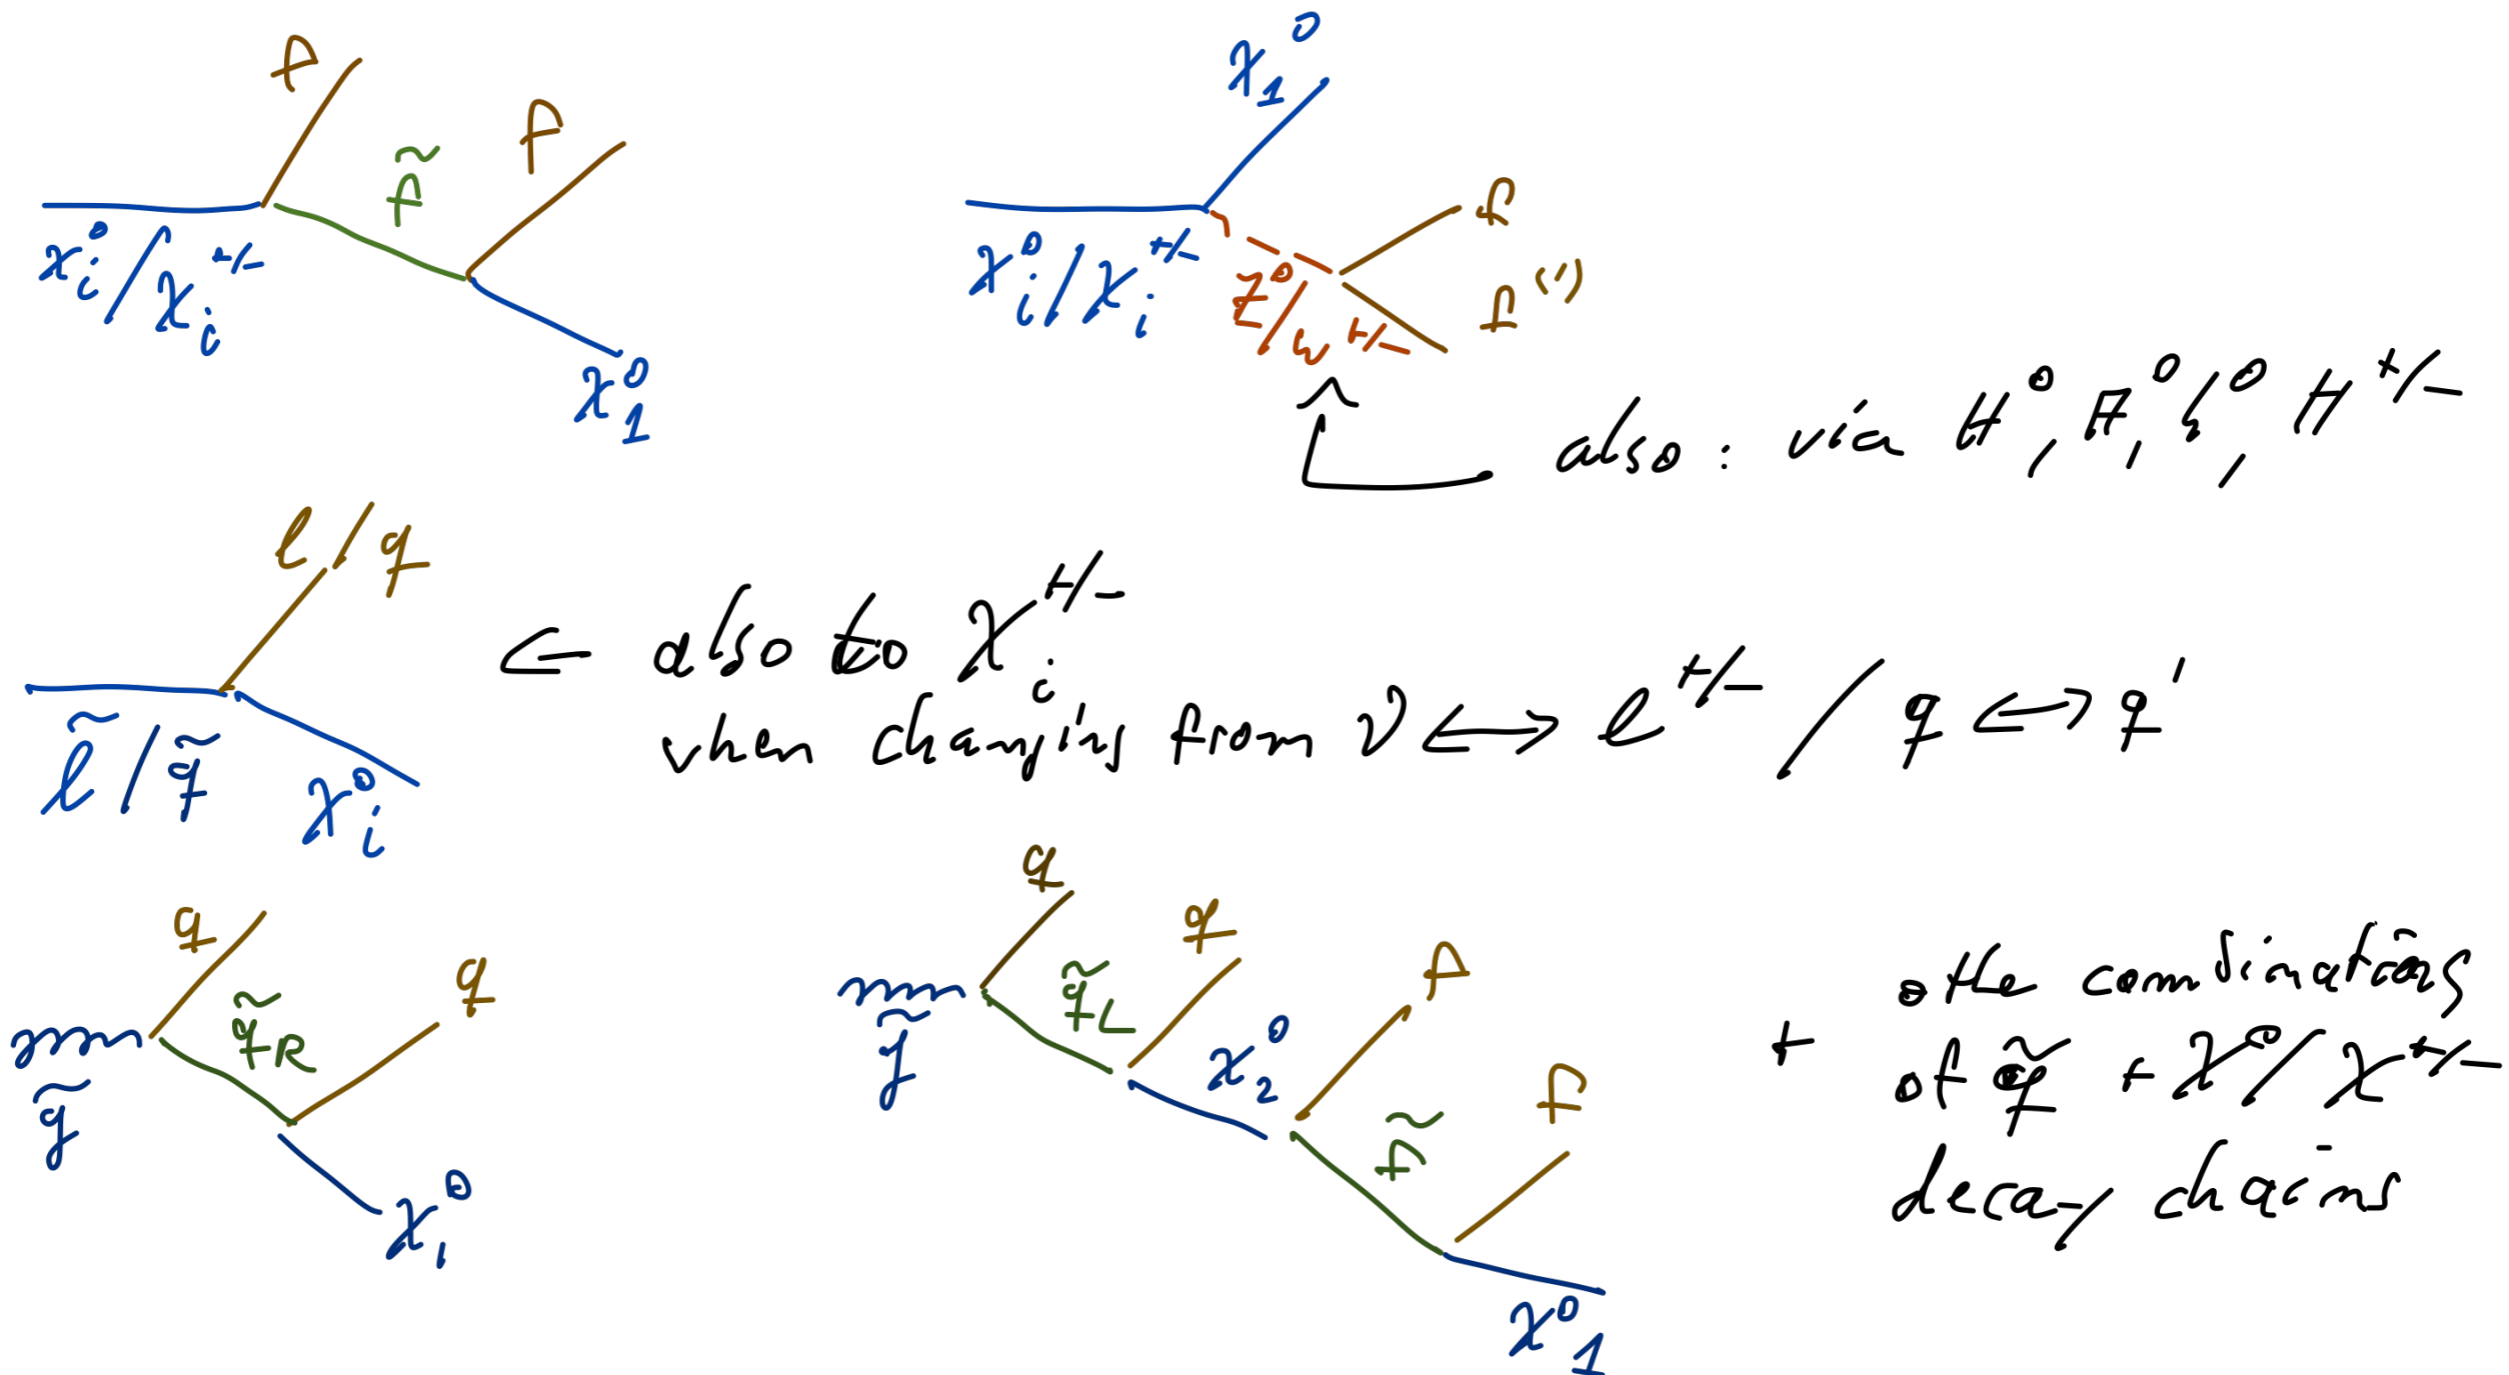 f
f
f̃
χᵢ⁰/χᵢ⁺/⁻
χ₁⁰
χ₁⁰
f
χᵢ⁰/χᵢ⁺/⁻
Z⁰/W⁺/⁻
f⁽'⁾
also: via H⁰, A⁰, h⁰, H⁺/⁻
l/q
← also to χᵢ⁺/⁻
l̃/q̃
χᵢ⁰
when changing from ν ↔ l⁺/⁻ / q ↔ q'
q
q
q̃_R
g̃
χ₁⁰
q
q
f
q̃_L
g̃
χ₂⁰
f
f̃
χ₁⁰
othe combinations
+ of q̃ + χ⁰/χ⁺/⁻
decay chains